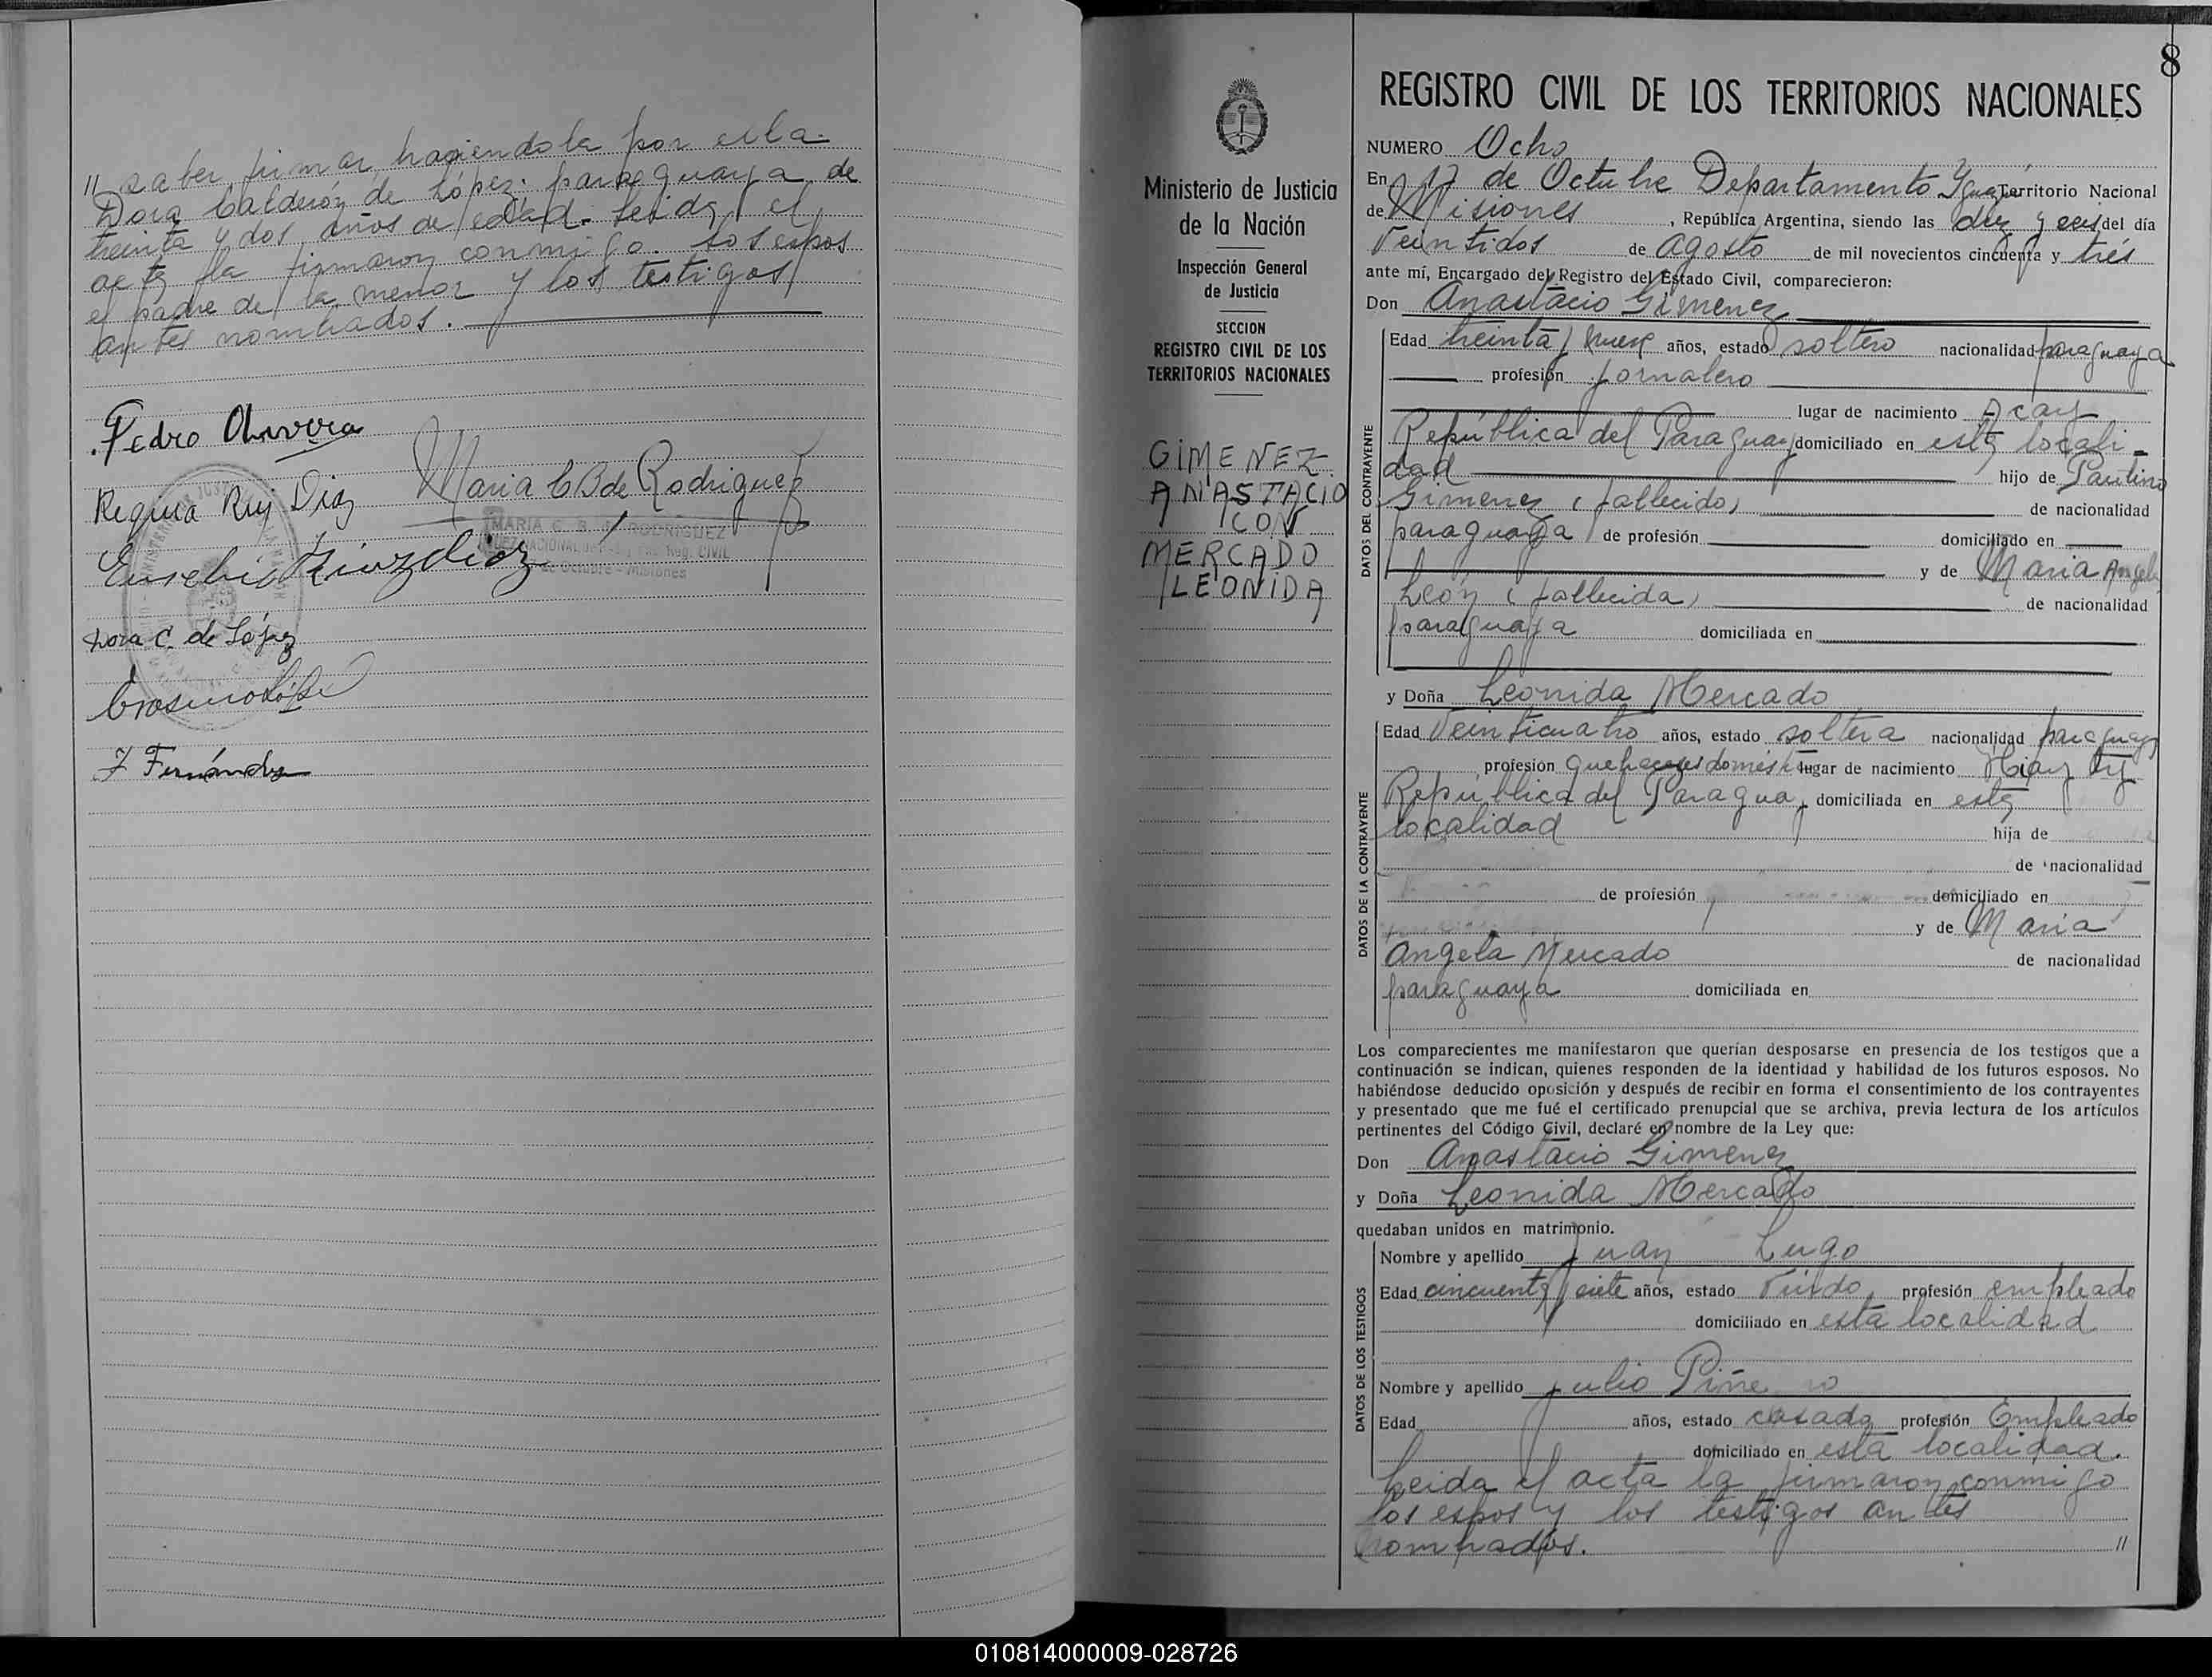 // saber firmar, haciendola por ella
Dora Calderón de López: paraguaya de
treinta y dos años de edad. Leida el
acta la firmaron conmigo los espos
el padre de la menor y los testigos
antes nombrados.
Pedro Chavera
Regina Ruy Diaz Maria C B de Rodriguez
MARIA C. B. de RODRIGUEZ
Eusebio Ruizdiaz
Dora C. de López
F Fernández
8
Ministerio de Justicia
de la Nación
Inspección General
de Justicia
SECCION
REGISTRO CIVIL DE LOS
TERRITORIOS NACIONALES
GIMENEZ
ANASTACIO
CON
MERCADO
LEONIDA
REGISTRO CIVIL DE LOS TERRITORIOS NACIONALES
NUMERO Ocho
En 17 de Octubre Departamento Iguazú Territorio Nacional
de Misiones, República Argentina, siendo las diez y seis del día
Veintidos de agosto de mil novecientos cincuenta y trés
ante mí, Encargado del Registro del Estado Civil, comparecieron:
Don Anastacio Gimenez
DATOS DEL CONTRAYENTE
Edad treinta y nueve años, estado soltero nacionalidad paraguaya
profesión jornalero
lugar de nacimiento Acay
República del Paraguay domiciliado en esta locali-
dad hijo de Paulino
Gimenez (fallecido) de nacionalidad
paraguaya de profesión domiciliado en
y de Maria Angela
León (fallecida) de nacionalidad
paraguaya domiciliada en
y Doña Leonida Mercado
DATOS DE LA CONTRAYENTE
Edad Veinticuatro años, estado soltera nacionalidad paraguaya
profesión quehaceres domést lugar de nacimiento
República del Paraguay domiciliada en esta
localidad hija de
de nacionalidad
de profesión domiciliado en
y de Maria
Angela Mercado de nacionalidad
paraguaya domiciliada en
Los comparecientes me manifestaron que querían desposarse en presencia de los testigos que a
continuación se indican, quienes responden de la identidad y habilidad de los futuros esposos. No
habiéndose deducido oposición y después de recibir en forma el consentimiento de los contrayentes
y presentado que me fué el certificado prenupcial que se archiva, previa lectura de los artículos
pertinentes del Código Civil, declaré en nombre de la Ley que:
Don Anastacio Gimenez
y Doña Leonida Mercado
quedaban unidos en matrimonio.
DATOS DE LOS TESTIGOS
Nombre y apellido Juan Lugo
Edad cincuenta y siete años, estado Viudo, profesión empleado
domiciliado en esta localidad
Nombre y apellido Julio Piñe ro
Edad años, estado casado profesión Empleado
domiciliado en esta localidad.
Leida el acta la firmaron conmigo
los espos y los testigos antes
nombrados. //
010814000009-028726